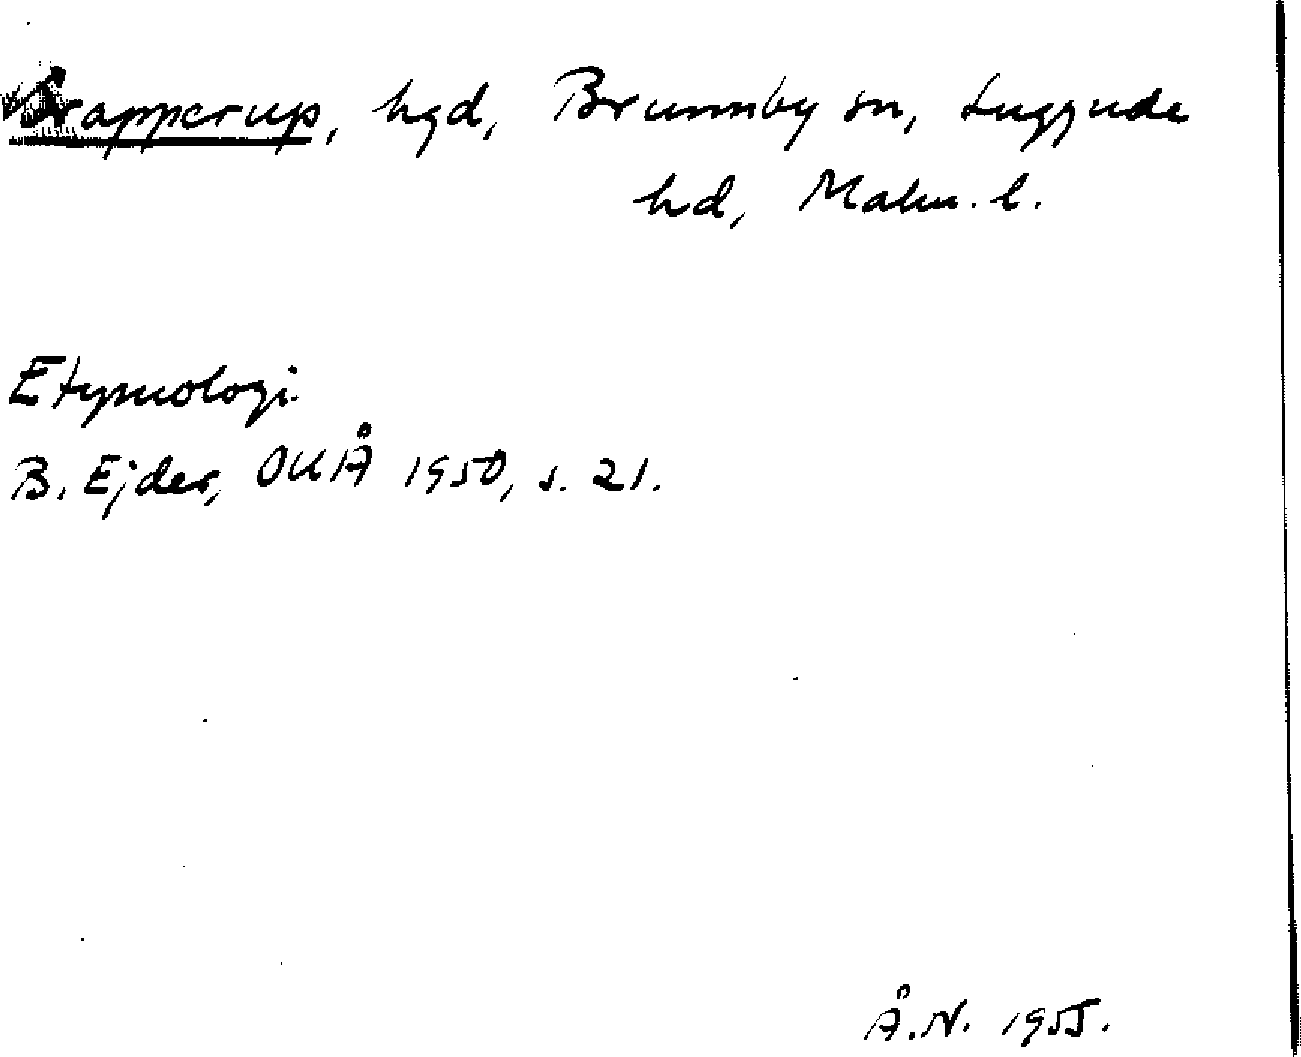 Krapperup, hgd, Brunnby sn, Luggude
hd, Malm. l.
Etymologi.
B. Ejder, OUÅ 1950, s. 21.
Å.N. 1955.